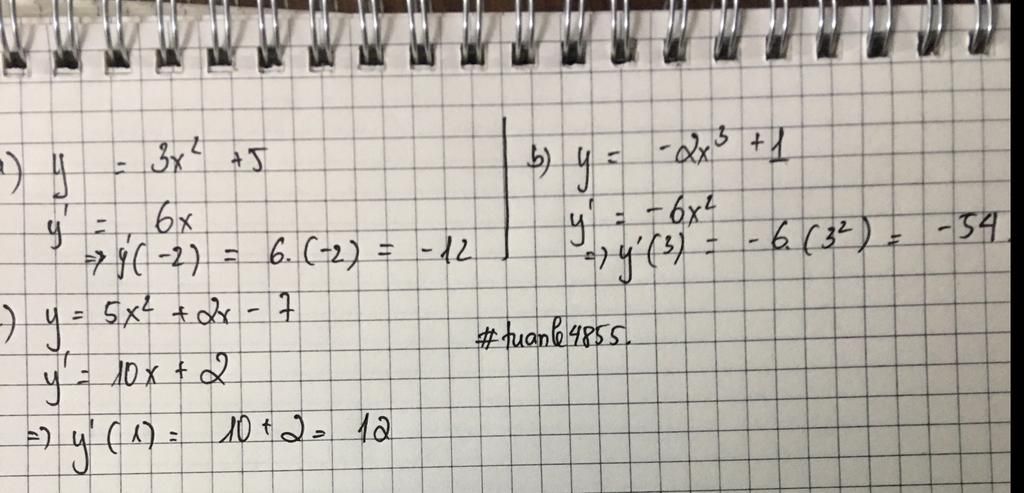 ) y = 3x² + 5
y' = 6x
=> y'(-2) = 6.(-2) = -12
b) y = -2x³ + 1
y' = -6x²
=> y'(3) = -6.(3²) = -54.
) y = 5x² + 2x - 7
y' = 10x + 2
=> y'(1) = 10 + 2 = 12
#tuanle4855.